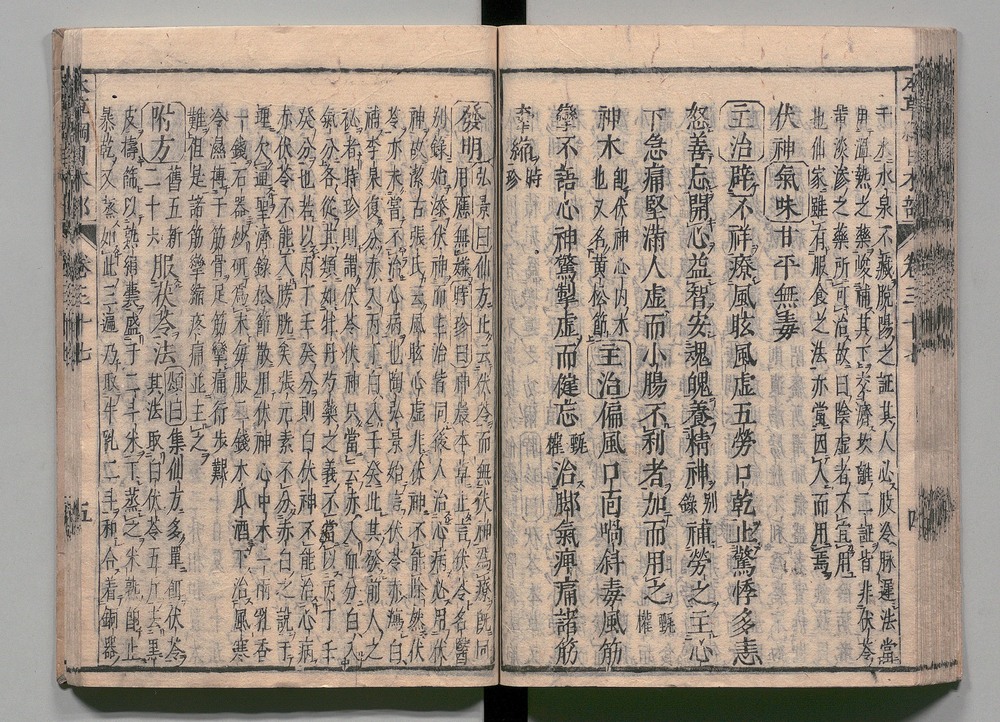 于水水泉不藏脫陽之証其人必肢冷脉遲法當
用溫熱之藥峻補其下交濟坎離二証皆非伏苓
带淡渗之藥所可治故曰陰虚者不宜用
也仙家雖有服食之法亦當因人而用焉
伏神 氣味 甘平無毒
主治 辟不祥療風眩風虚五勞口乾止驚悸多恚
怒善忘開心益智安魂魄養精神 别錄 補勞乏主心
下急痛堅滿人虚而小腸不利者加而用之 甄權
神木 即伏神心内木也又名黄松節 主治 偏風口面喎斜毒風筋
攣不語心神驚掣虚而健忘 甄權 治脚氣痺痛諸筋
牽縮 時珍
發明 弘景曰仙方止云伏苓而無伏神為療既同
用應無嫌 時珍曰神農本草止言伏苓名醫
别錄始添伏神而主治皆同後人治心病必用伏
神故潔古張氏云風眩心虚非伏神不能除然伏
苓亦未嘗不治心病也陶弘景始言伏苓赤瀉白
補李杲復分赤入丙丁白入壬癸此其發前人之
秘者時珍則謂伏苓伏神只當云赤入血分白入
氣分各從其類如牡丹芍藥之義不當以丙丁壬
癸分也若以丙丁壬癸分則白伏神不能治心病
赤伏苓不能入膀胱矣張元素不分赤白之說于
理欠通聖濟錄松節散用伏神心中木一兩乳香
一錢石器炒研為末每服二錢木瓜酒下治風寒
冷濕搏于筋骨足筋攣痛行步艱
難但是諸筋攣縮疼痛並主之
附方 舊五新二十六 服伏苓法 頌曰集仙方多單餌伏苓
其法取白伏苓五斤去黒
皮擣篩以熟絹囊盛于二斗米下蒸之米熟即止
暴乾又蒸如此三遍乃取牛乳二斗和合着銅器
本草綱目木部
卷三十七
五